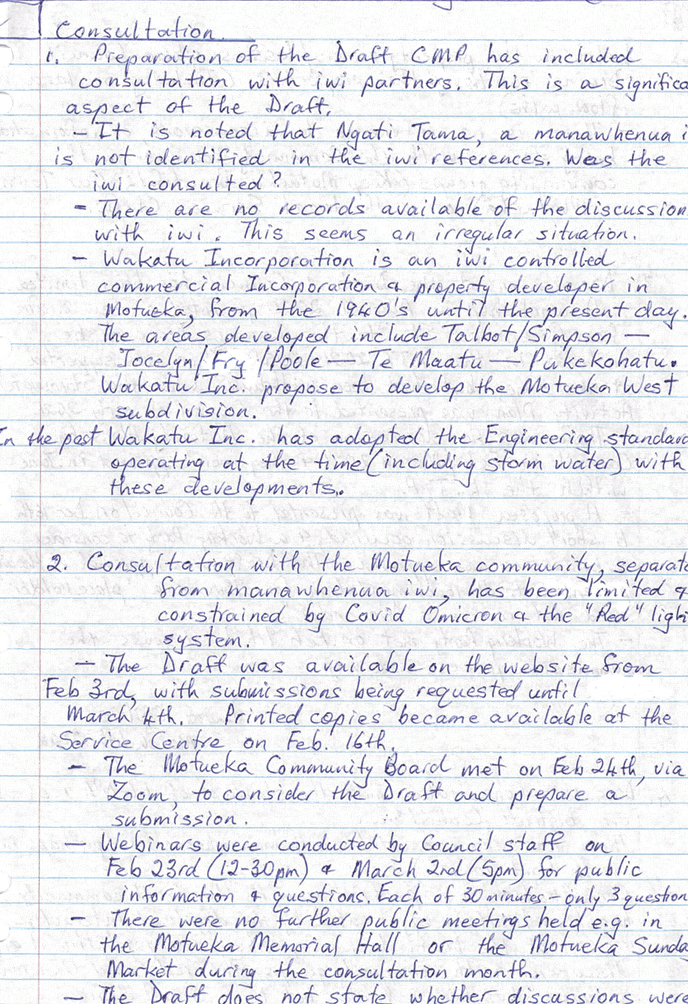 Consultation
1. Preparation of the Draft CMP has included
consultation with iwi partners. This is a significa
aspect of the Draft.
- It is noted that Ngati Tama, a manawhenua i
is not identified in the iwi references. Was the
iwi consulted?
- There are no records available of the discussion
with iwi. This seems an irregular situation.
- Wakatu Incorporation is an iwi controlled
commercial Incorporation & property developer in
Motueka, from the 1940's until the present day.
The areas developed include Talbot/Simpson —
Jocelyn/Fry/Poole — Te Maatu — Pukekohatu.
Wakatu Inc. propose to develop the Motueka West
subdivision.
In the past Wakatu Inc. has adopted the Engineering standard
operating at the time (including storm water) with
these developments.
2. Consultation with the Motueka community, separate
from manawhenua iwi, has been limited &
constrained by Covid Omicron & the "Red" light
system.
- The Draft was available on the website from
Feb 3rd, with submissions being requested until
March 4th. Printed copies became available at the
Service Centre on Feb. 16th.
- The Motueka Community Board met on Feb 24th, via
Zoom, to consider the Draft and prepare a
submission.
- Webinars were conducted by Council staff on
Feb 23rd (12-30pm) & March 2nd (5pm) for public
information & questions. Each of 30 minutes - only 3 question
- There were no further public meetings held e.g. in
the Motueka Memorial Hall or the Motueka Sunda
Market during the consultation month.
- The Draft does not state whether discussions were